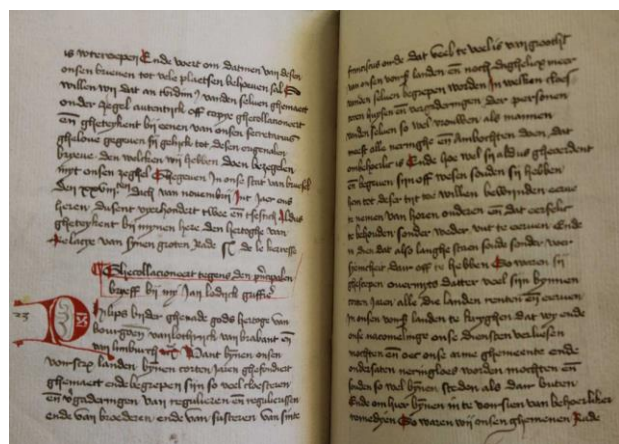 is wtervoepen Ende want om datmen van desen
onsen brieuen tot vele plaetsen behouuen sal So
willen wij dat an tvidimus vanden seluen ghemaect
onder zegel autentijck off copye ghecollacioneert
en̄ gheteykent bij eenen van onsen secretarius
gheloue gegeuen sij gelijck tot desen originalen
brieue. den welcken wij hebben doen bezegelen
myt onsen zeghel Ghegeuen In onse stat van bruesel
den dach van nouembri Int Jaer ons
heren dusent vyerhondert twee en̄ tsestich Aldus
gheteykent bij mynen here den hertoghe van
Relacye van synen groten Rade
Ghecollacioneert tegens den principalen
brieff bij mij Jan lodijck
23
Philips bijder ghenade gods hertoge van
bourgoen van lothrijck van brabant en̄
van limburch Want bynen onsen
vorscr landen bynen corten Jaren ghefondeert
ghemaect ende begrepen sijn so veel cloesteren
en̄ vgaderingen van regulieren en̄ regulierssen
ende van broederen ende van susteren van sinte
franciscus orde dat veel te veel is van grootheit
van onsen vors landen en̄ noch daghelijx meer
vanden seluen begrepen worden In welken cloes
teren huysen en̄ vergaderingen der personen
vanden seluen so wel vrouwen als mannen
meest alle neringhe en̄ Ambochten doen dat
onbehoerlic is Ende hoe wel sij aldus gheoerdent
en̄ begreuen sijn off wesen souden sij hebben
hen tot deser tijt toe willen bewijnden eerue
te nemen van horen ouderen en̄ dat eerfelic
te behouden sonder weder vut te eeruen Ende
n dien dat also langhe staen soude sonder voer
sienicheit daer off te hebben So waren sij
gheschepen ouermyts datter veel sijn bynnen
corten Jaren alle die landen renten en̄ eeruen
In onsen vors landen te kryghen dat wy ende
onse nacomelinge onse diensten verliesen
mochten en̄ oec onse arme ghemeente ende
ondersaten neringloes worden mochten en̄
souden so wel bynnen steden als daer buten
Ende om hier bynnen in te voersien van behoerliker
remedyen So waren wij onsen ghemeenen Rade